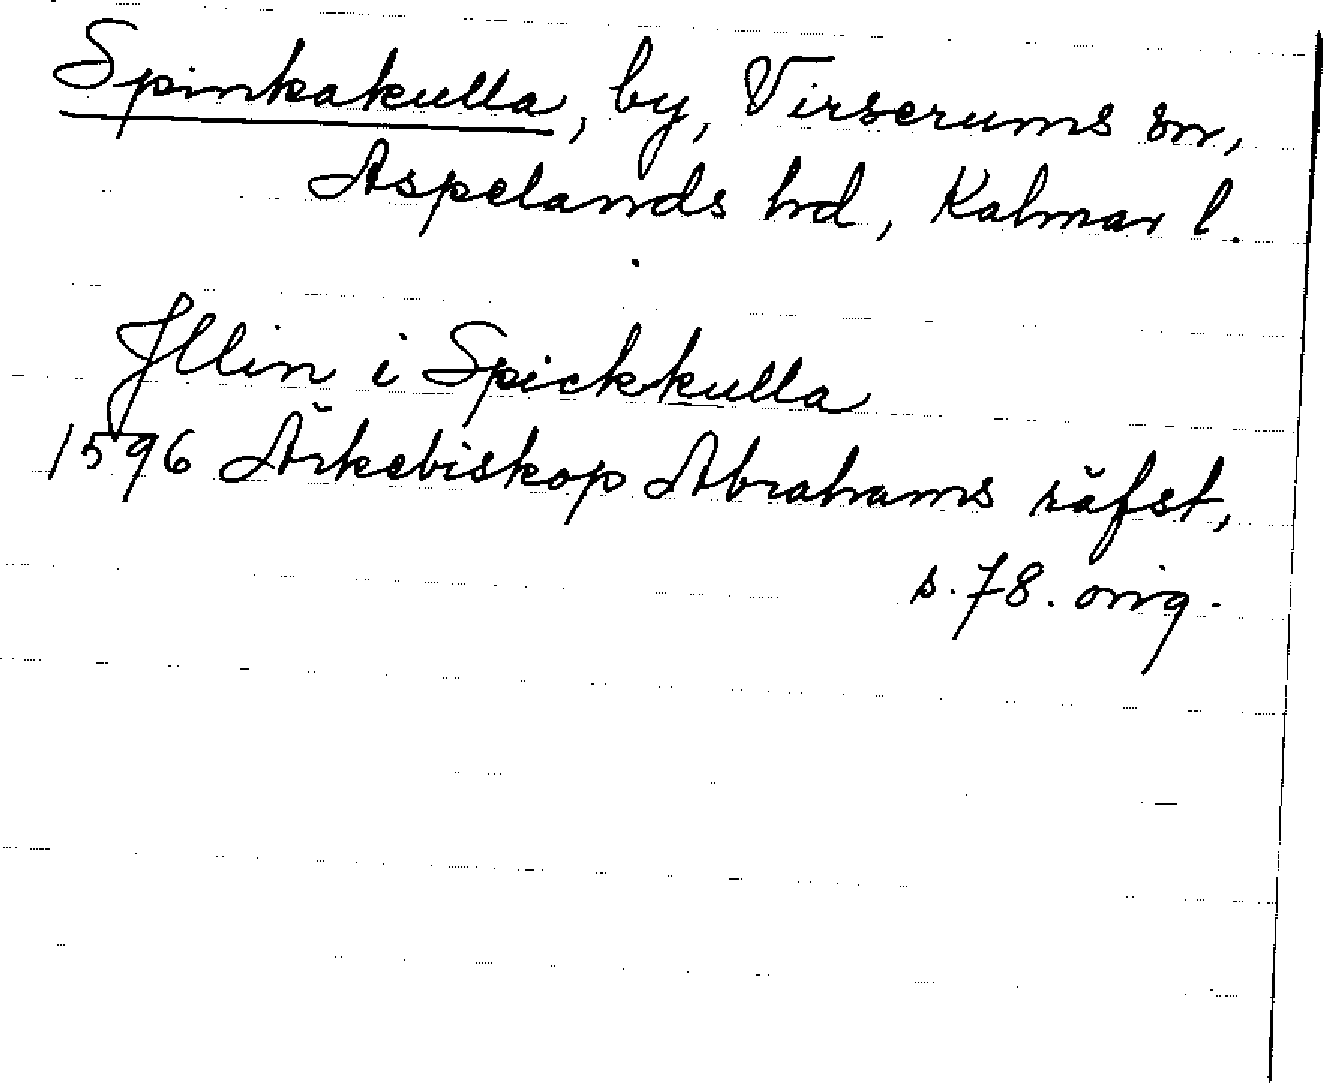 Spinkakulla, by, Virserums sn,
Aspelands hrd, Kalmar l.
Jllin i Spickkulla
1596 Ärkebiskop Abrahams räfst,
s. 78. orig.